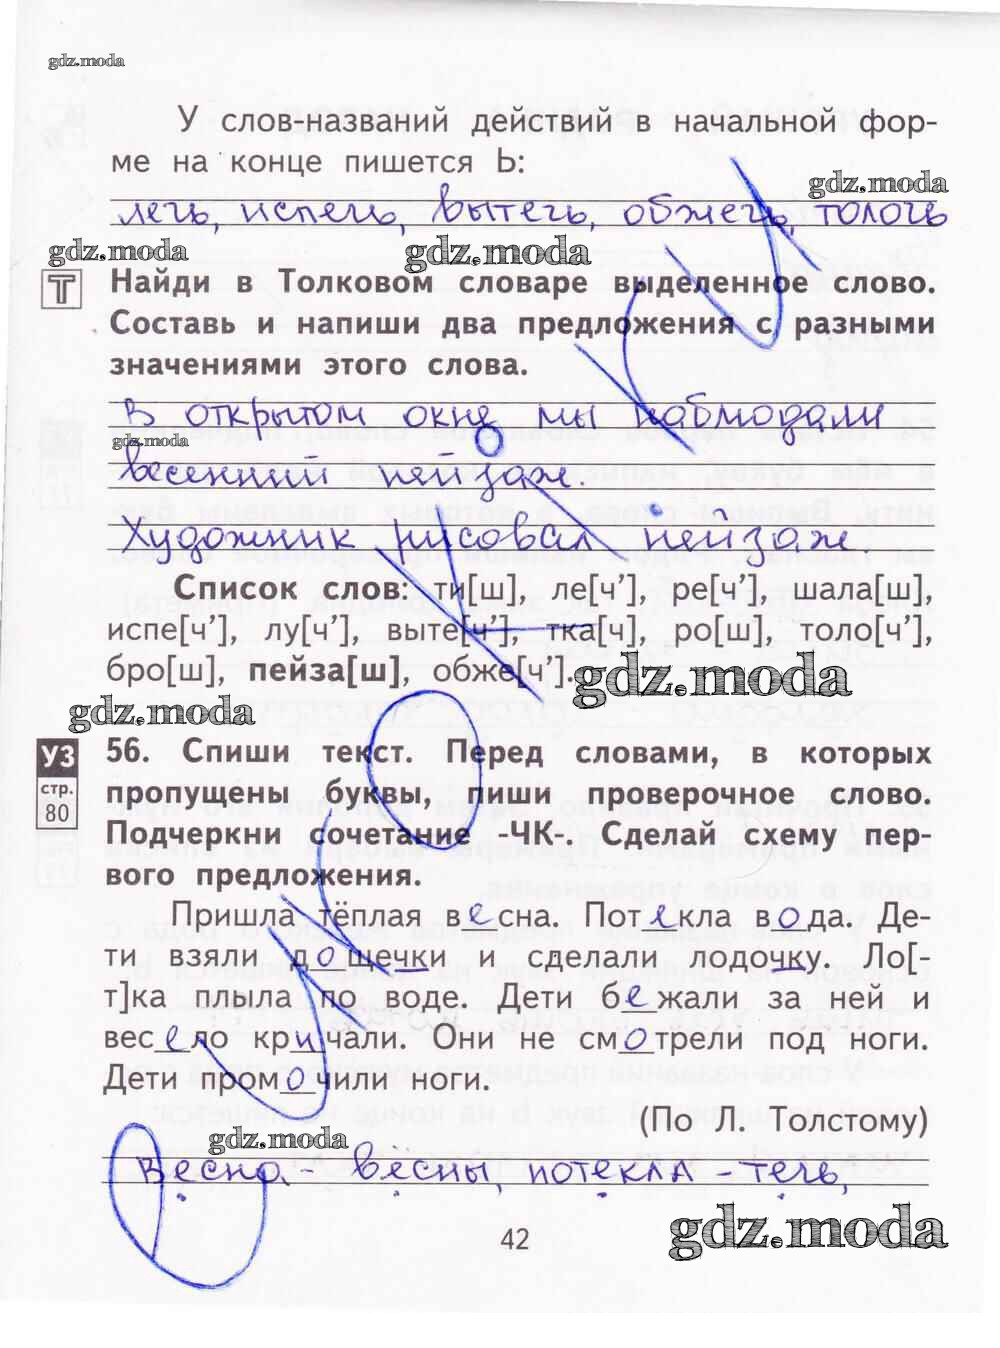 gdz.moda
У слов-названий действий в начальной фор-
ме на конце пишется Ь:
gdz.moda
лечь, испечь, вытечь, обжечь, толочь
gdz.moda gdz.moda
Т Найди в Толковом словаре выделенное слово.
Составь и напиши два предложения с разными
значениями этого слова.
В открытом окне мы наблюдали
gdz.moda
весенний пейзаж.
Художник рисовал пейзаж
Список слов: ти[ш], ле[ч’], ре[ч’], шала[ш],
испе[ч’], лу[ч’], выте[ч’], тка[ч], ро[ш], толо[ч’],
бро[ш], пейза[ш], обже[ч’].
gdz.moda
gdz.moda
УЗ 56. Спиши текст. Перед словами, в которых
стр. 80 пропущены буквы, пиши проверочное слово.
Подчеркни сочетание -ЧК-. Сделай схему пер-
вого предложения.
Пришла тёплая весна. Потекла вода. Де-
ти взяли дощечки и сделали лодочку. Ло[-
т]ка плыла по воде. Дети бежали за ней и
весело кричали. Они не смотрели под ноги.
Дети промочили ноги.
(По Л. Толстому)
gdz.moda
Весна - вёсны, потекла - течь,
42
gdz.moda